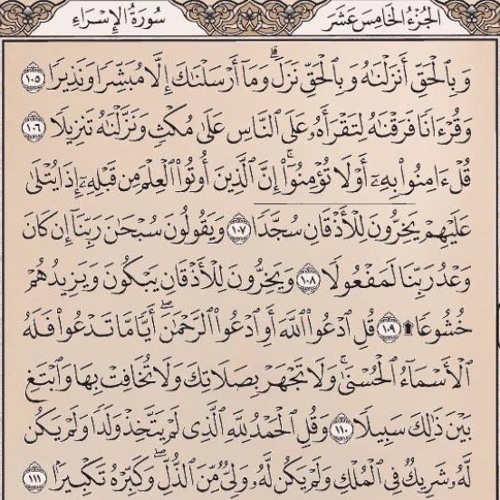 الجزء الخامس عشر سورة الإسراء
وَبِٱلۡحَقِّ أَنزَلۡنَٰهُ وَبِٱلۡحَقِّ نَزَلَۗ وَمَآ أَرۡسَلۡنَٰكَ إِلَّا مُبَشِّرٗا وَنَذِيرٗا ١٠٥
وَقُرۡءَانٗا فَرَقۡنَٰهُ لِتَقۡرَأَهُۥ عَلَى ٱلنَّاسِ عَلَىٰ مُكۡثٖ وَنَزَّلۡنَٰهُ تَنزِيلٗا ١٠٦
قُلۡ ءَامِنُواْ بِهِۦٓ أَوۡ لَا تُؤۡمِنُوٓاْۚ إِنَّ ٱلَّذِينَ أُوتُواْ ٱلۡعِلۡمَ مِن قَبۡلِهِۦٓ إِذَا يُتۡلَىٰ
عَلَيۡهِمۡ يَخِرُّونَۤ لِلۡأَذۡقَانِۤ سُجَّدٗاۤ ١٠٧ وَيَقُولُونَ سُبۡحَٰنَ رَبِّنَآ إِن كَانَ
وَعۡدُ رَبِّنَا لَمَفۡعُولٗا ١٠٨ وَيَخِرُّونَ لِلۡأَذۡقَانِ يَبۡكُونَ وَيَزِيدُهُمۡ
خُشُوعٗا۩ ١٠٩ قُلِ ٱدۡعُواْ ٱللَّهَ أَوِ ٱدۡعُواْ ٱلرَّحۡمَٰنَۖ أَيّٗا مَّا تَدۡعُواْ فَلَهُ
ٱلۡأَسۡمَآءُ ٱلۡحُسۡنَىٰۚ وَلَا تَجۡهَرۡ بِصَلَاتِكَ وَلَا تُخَافِتۡ بِهَا وَٱبۡتَغِ
بَيۡنَ ذَٰلِكَ سَبِيلٗا ١١٠ وَقُلِ ٱلۡحَمۡدُ لِلَّهِ ٱلَّذِي لَمۡ يَتَّخِذۡ وَلَدٗا وَلَمۡ يَكُن
لَّهُۥ شَرِيكٞ فِي ٱلۡمُلۡكِ وَلَمۡ يَكُن لَّهُۥ وَلِيّٞ مِّنَ ٱلذُّلِّۖ وَكَبِّرۡهُ تَكۡبِيرَۢا ١١١